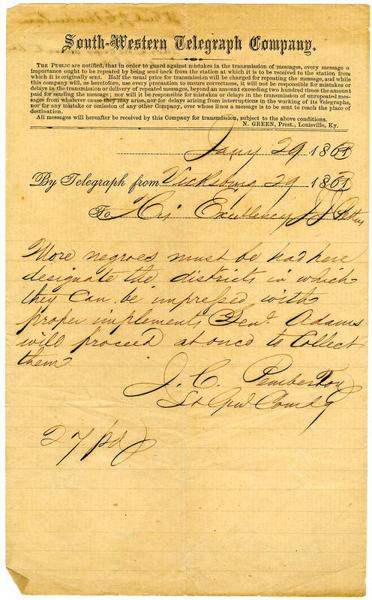 South-Western Telegraph Company.
THE PUBLIC are notified, that in order to guard against mistakes in the transmission of messages, every message of
importance ought to be repeated by being sent back from the station at which it is to be received to the station from
which it is originally sent. Half the usual price for transmission will be charged for repeating the message, and while
this company will, as heretofore, use every precaution to ensure correctness, it will not be responsible for mistakes or
delays in the transmission or delivery of repeated messages, beyond an amount exceeding two hundred times the amount
paid for sending the message; nor will it be responsible for mistakes or delays in the transmission of unrepeated messages
from whatever cause they may arise, nor for delays arising from interruptions in the working of its Telegraphs,
nor for any mistake or omission of any other Company, over whose lines a message is to be sent to reach the place of
destination.
All messages will hereafter be received by this Company for transmission, subject to the above conditions.
N. GREEN, Prest., Louisville, Ky.
Jany 29 1863
By Telegraph from Vicksburg 29 1863
To His Excellency J J Pettus
More negroes must be had here
designate the districts in which
they can be impressed with
proper implements, Genl. Adams
will proceed at once to collect
them
J. C. Pemberton
Lt Genl Comdg
27 pd